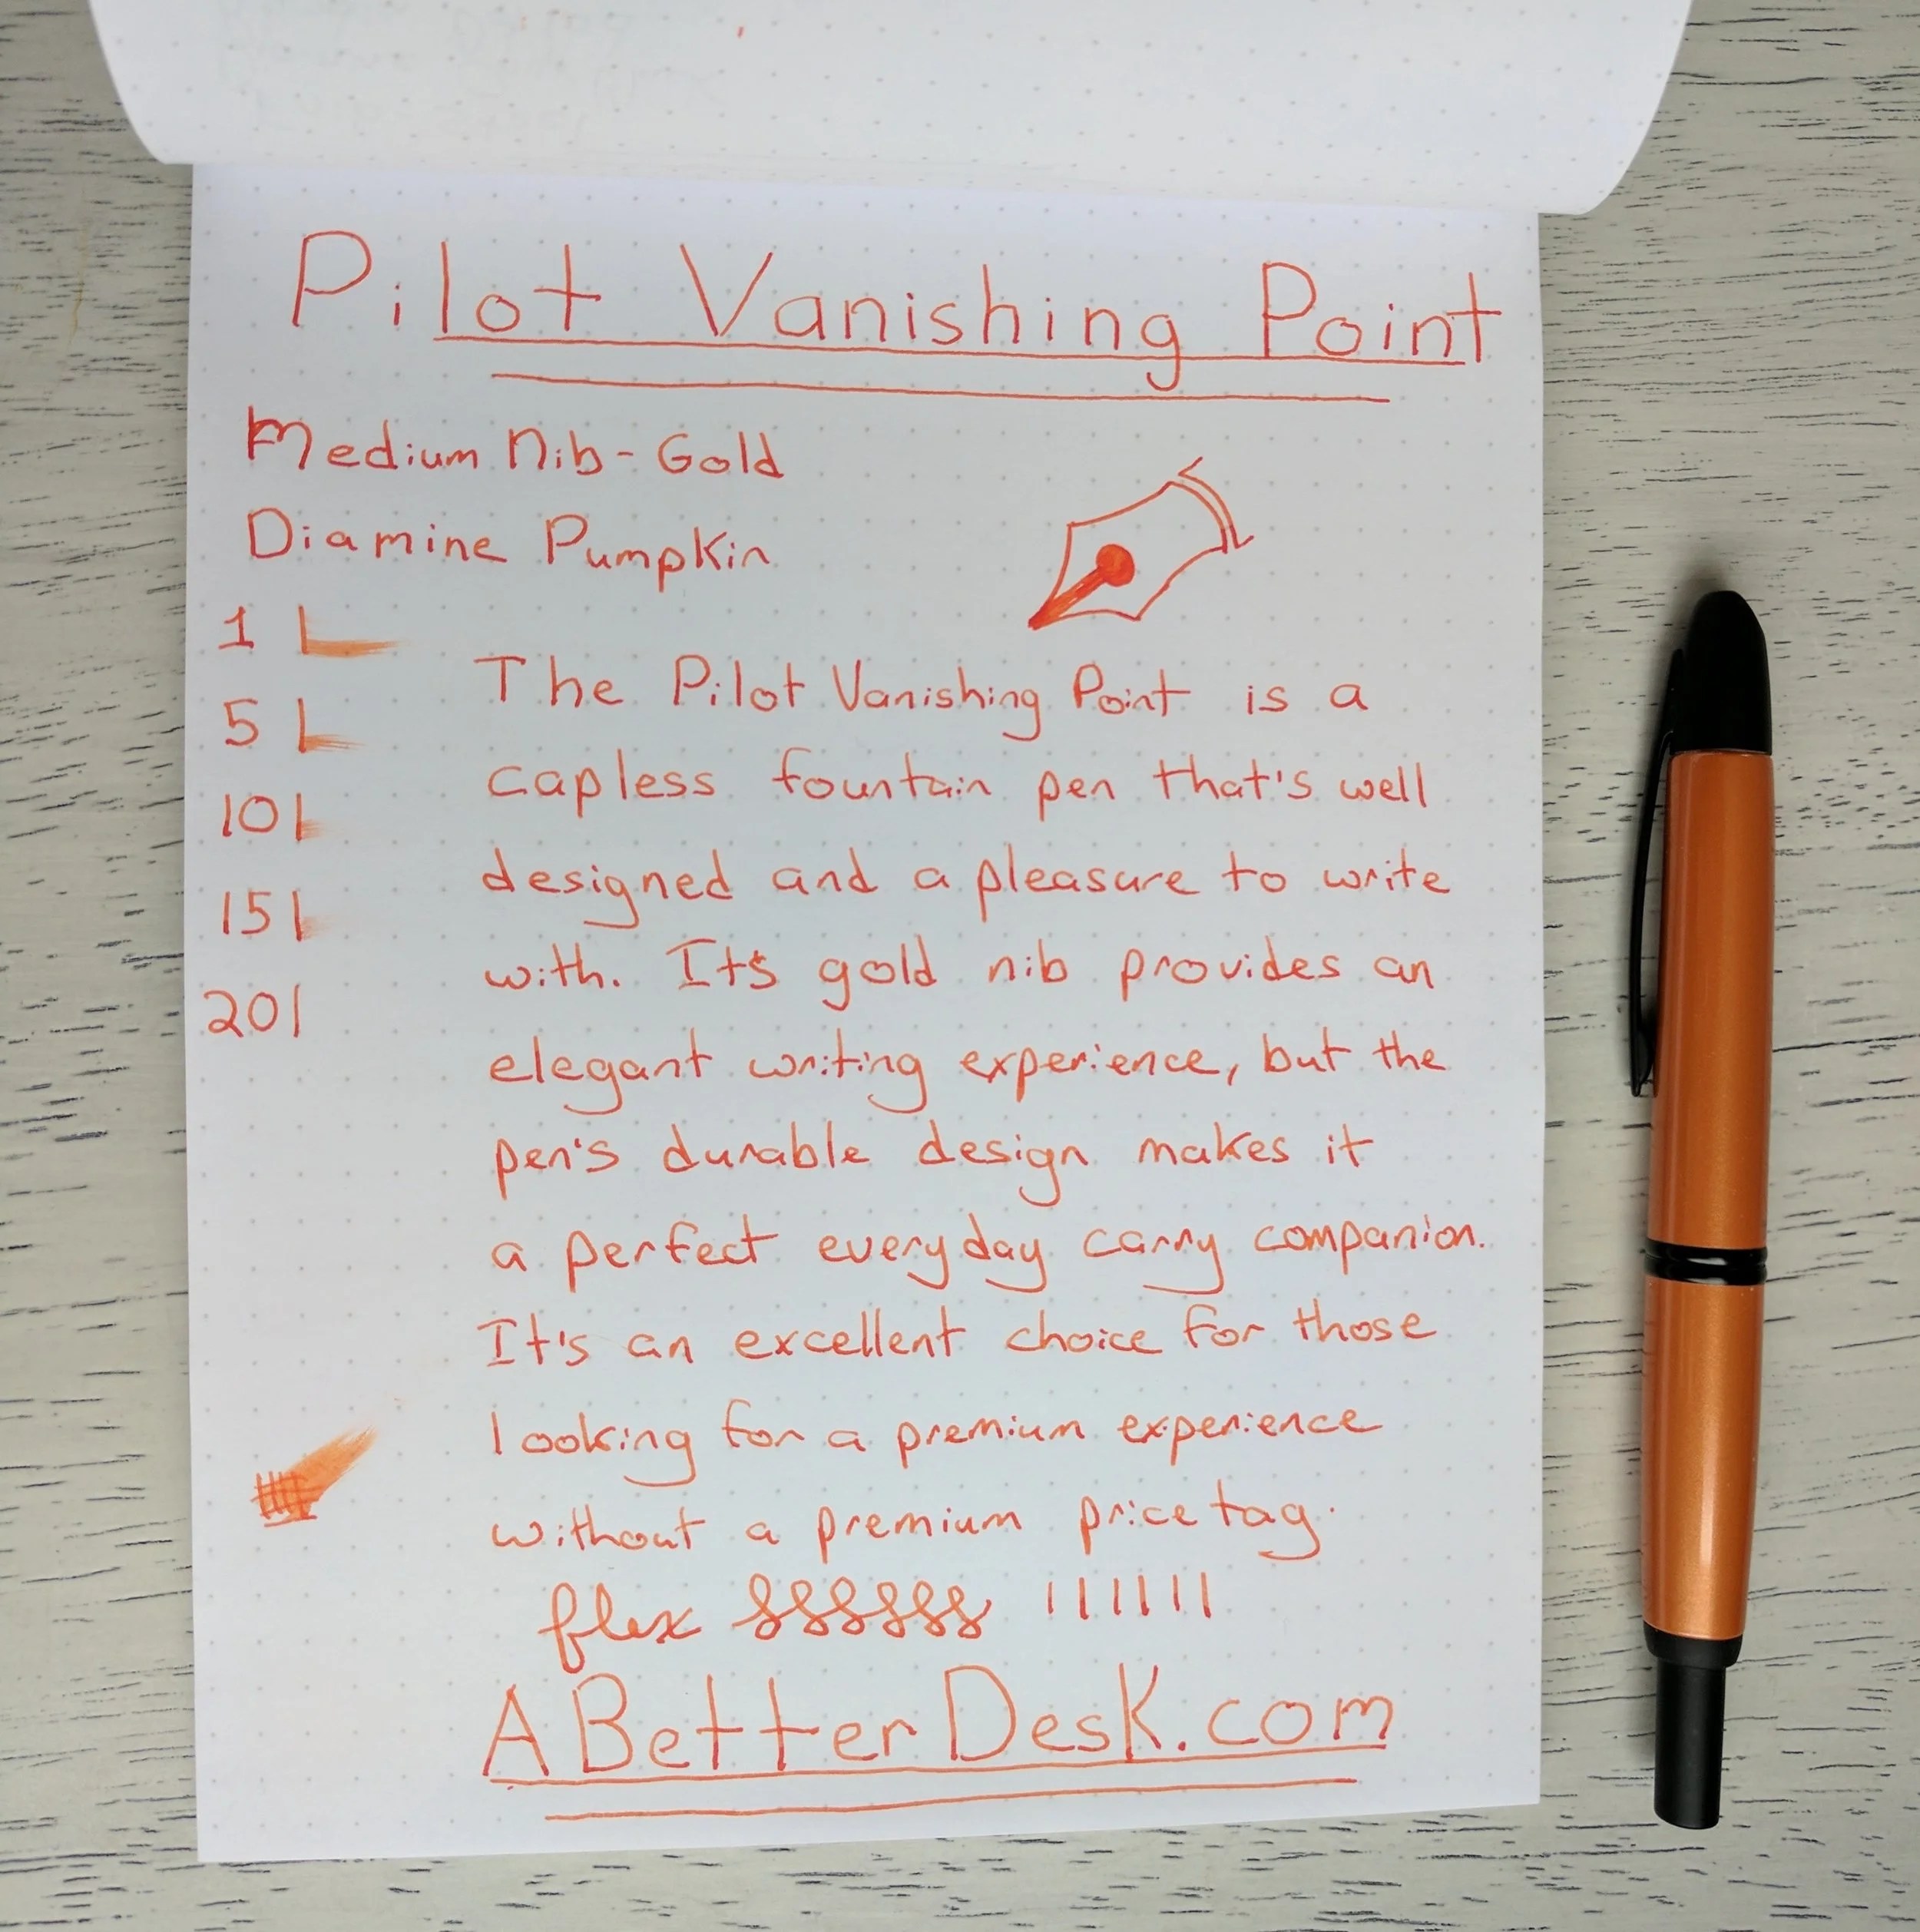 Pilot Vanishing Point
Medium Nib - Gold
Diamine Pumpkin
1
5
10
15
20
The Pilot Vanishing Point is a
capless fountain pen that's well
designed and a pleasure to write
with. Its gold nib provides an
elegant writing experience, but the
pen's durable design makes it
a perfect everyday carry companion.
It's an excellent choice for those
looking for a premium experience
without a premium price tag.
flex
ABetterDesk.com